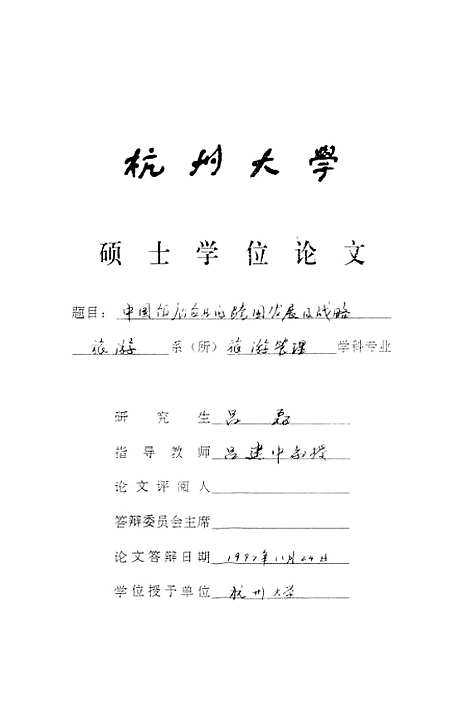 杭州大學
硕士学位论文
题目：中国饭店企业的跨国发展及战略
旅游 系（所） 旅游管理 学科专业
研究生 吕磊
指导教师 吕建中教授
论文评阅人
答辩委员会主席
论文答辩日期 1997年11月24日
学位授予单位 杭州大学